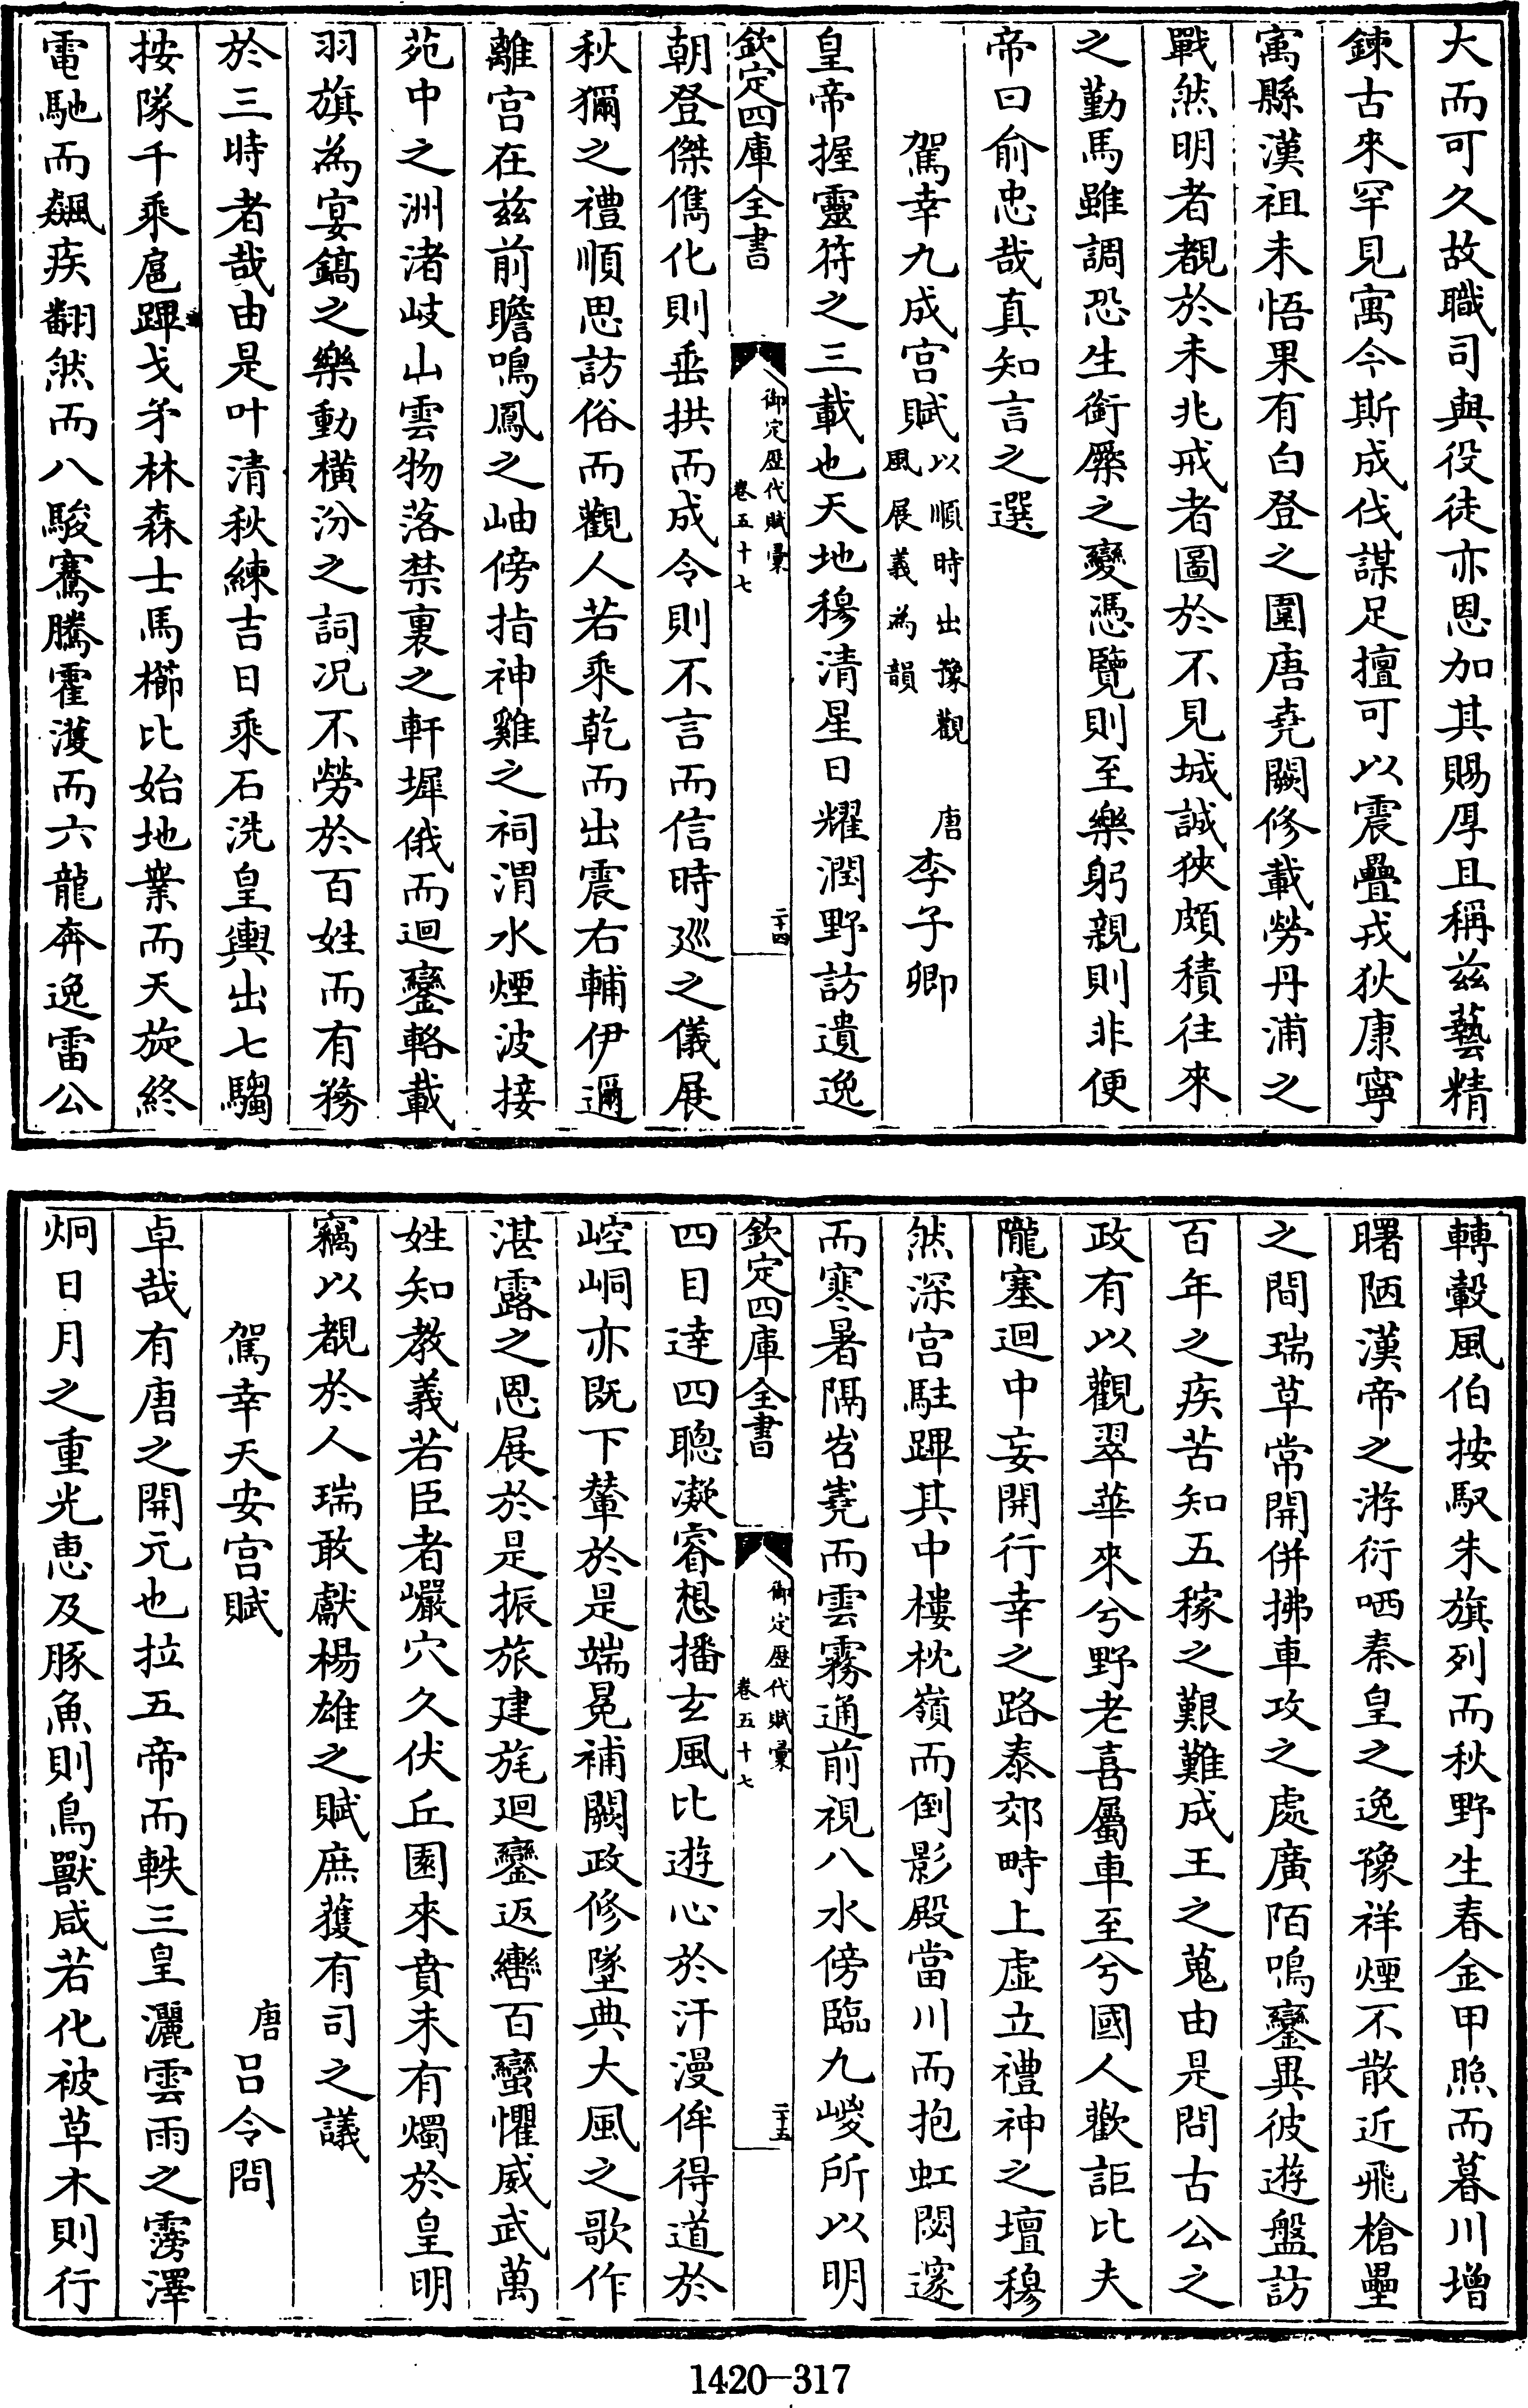 大而可久故職司與役徒亦恩加其賜厚且稱兹藝精
鍊古來罕見寓今斯成伐謀足擅可以震疊戎狄康寧
寓縣漢祖未悟果有白登之圍唐堯闕修載勞丹浦之
戰然明者覩於未兆戒者圖於不見城誠狹頗積往來
之勤馬雖調恐生銜橜之變憑覽則至樂躬親則非便
帝曰俞忠哉真知言之選
駕幸九成宫賦以順時出豫觀風展義為韻 唐李子卿
皇帝握靈符之三載也天地穆清星日耀潤野訪遺逸
欽定四庫全書 御定歷代賦彙卷五十七 二十四
朝登傑儁化則垂拱而成令則不言而信時巡之儀展
秋獮之禮順思訪俗而觀人若乘乾而出震右輔伊邇
離宫在兹前瞻鳴鳳之岫傍指神雞之祠渭水煙波接
苑中之洲渚岐山雲物落禁裏之軒墀俄而迴鑾輅載
羽旗為宴鎬之樂動橫汾之詞况不勞於百姓而有務
於三時者哉由是叶清秋練吉日乘石洗皇輿出七騶
按隊千乘扈蹕戈矛林森士馬櫛比始地業而天旋終
電馳而飆疾翻然而八駿騫騰霍濩而六龍奔逸雷公
轉轂風伯按馭朱旗列而秋野生春金甲照而暮川增
曙陋漢帝之游衍哂秦皇之逸豫祥煙不散近飛槍壘
之間瑞草常開併拂車攻之處廣陌鳴鑾異彼遊盤訪
百年之疾苦知五稼之艱難成王之蒐由是問古公之
政有以觀翠華來兮野老喜屬車至兮國人歡詎比夫
隴塞迴中妄開行幸之路泰郊畤上虛立禮神之壇穆
然深宫駐蹕其中樓枕嶺而倒影殿當川而抱虹閟邃
而寒暑隔岧嶤而雲霧通前視八水傍臨九嵕所以明
欽定四庫全書 御定歷代賦彙卷五十七 二十五
四目達四聰凝睿想播玄風比遊心於汗漫侔得道於
崆峒亦既下輦於是端冕補闕政修墜典大風之歌作
湛露之恩展於是振旅建旄迴鑾返轡百蠻懼威武萬
姓知教義若臣者巖穴久伏丘園來賁未有燭於皇明
竊以覩於人瑞敢獻楊雄之賦庶獲有司之議
駕幸天安宫賦 唐吕令問
卓哉有唐之開元也拉五帝而軼三皇灑雲雨之霶澤
炯日月之重光恵及豚魚則鳥獸咸若化被草木則行
1420-317